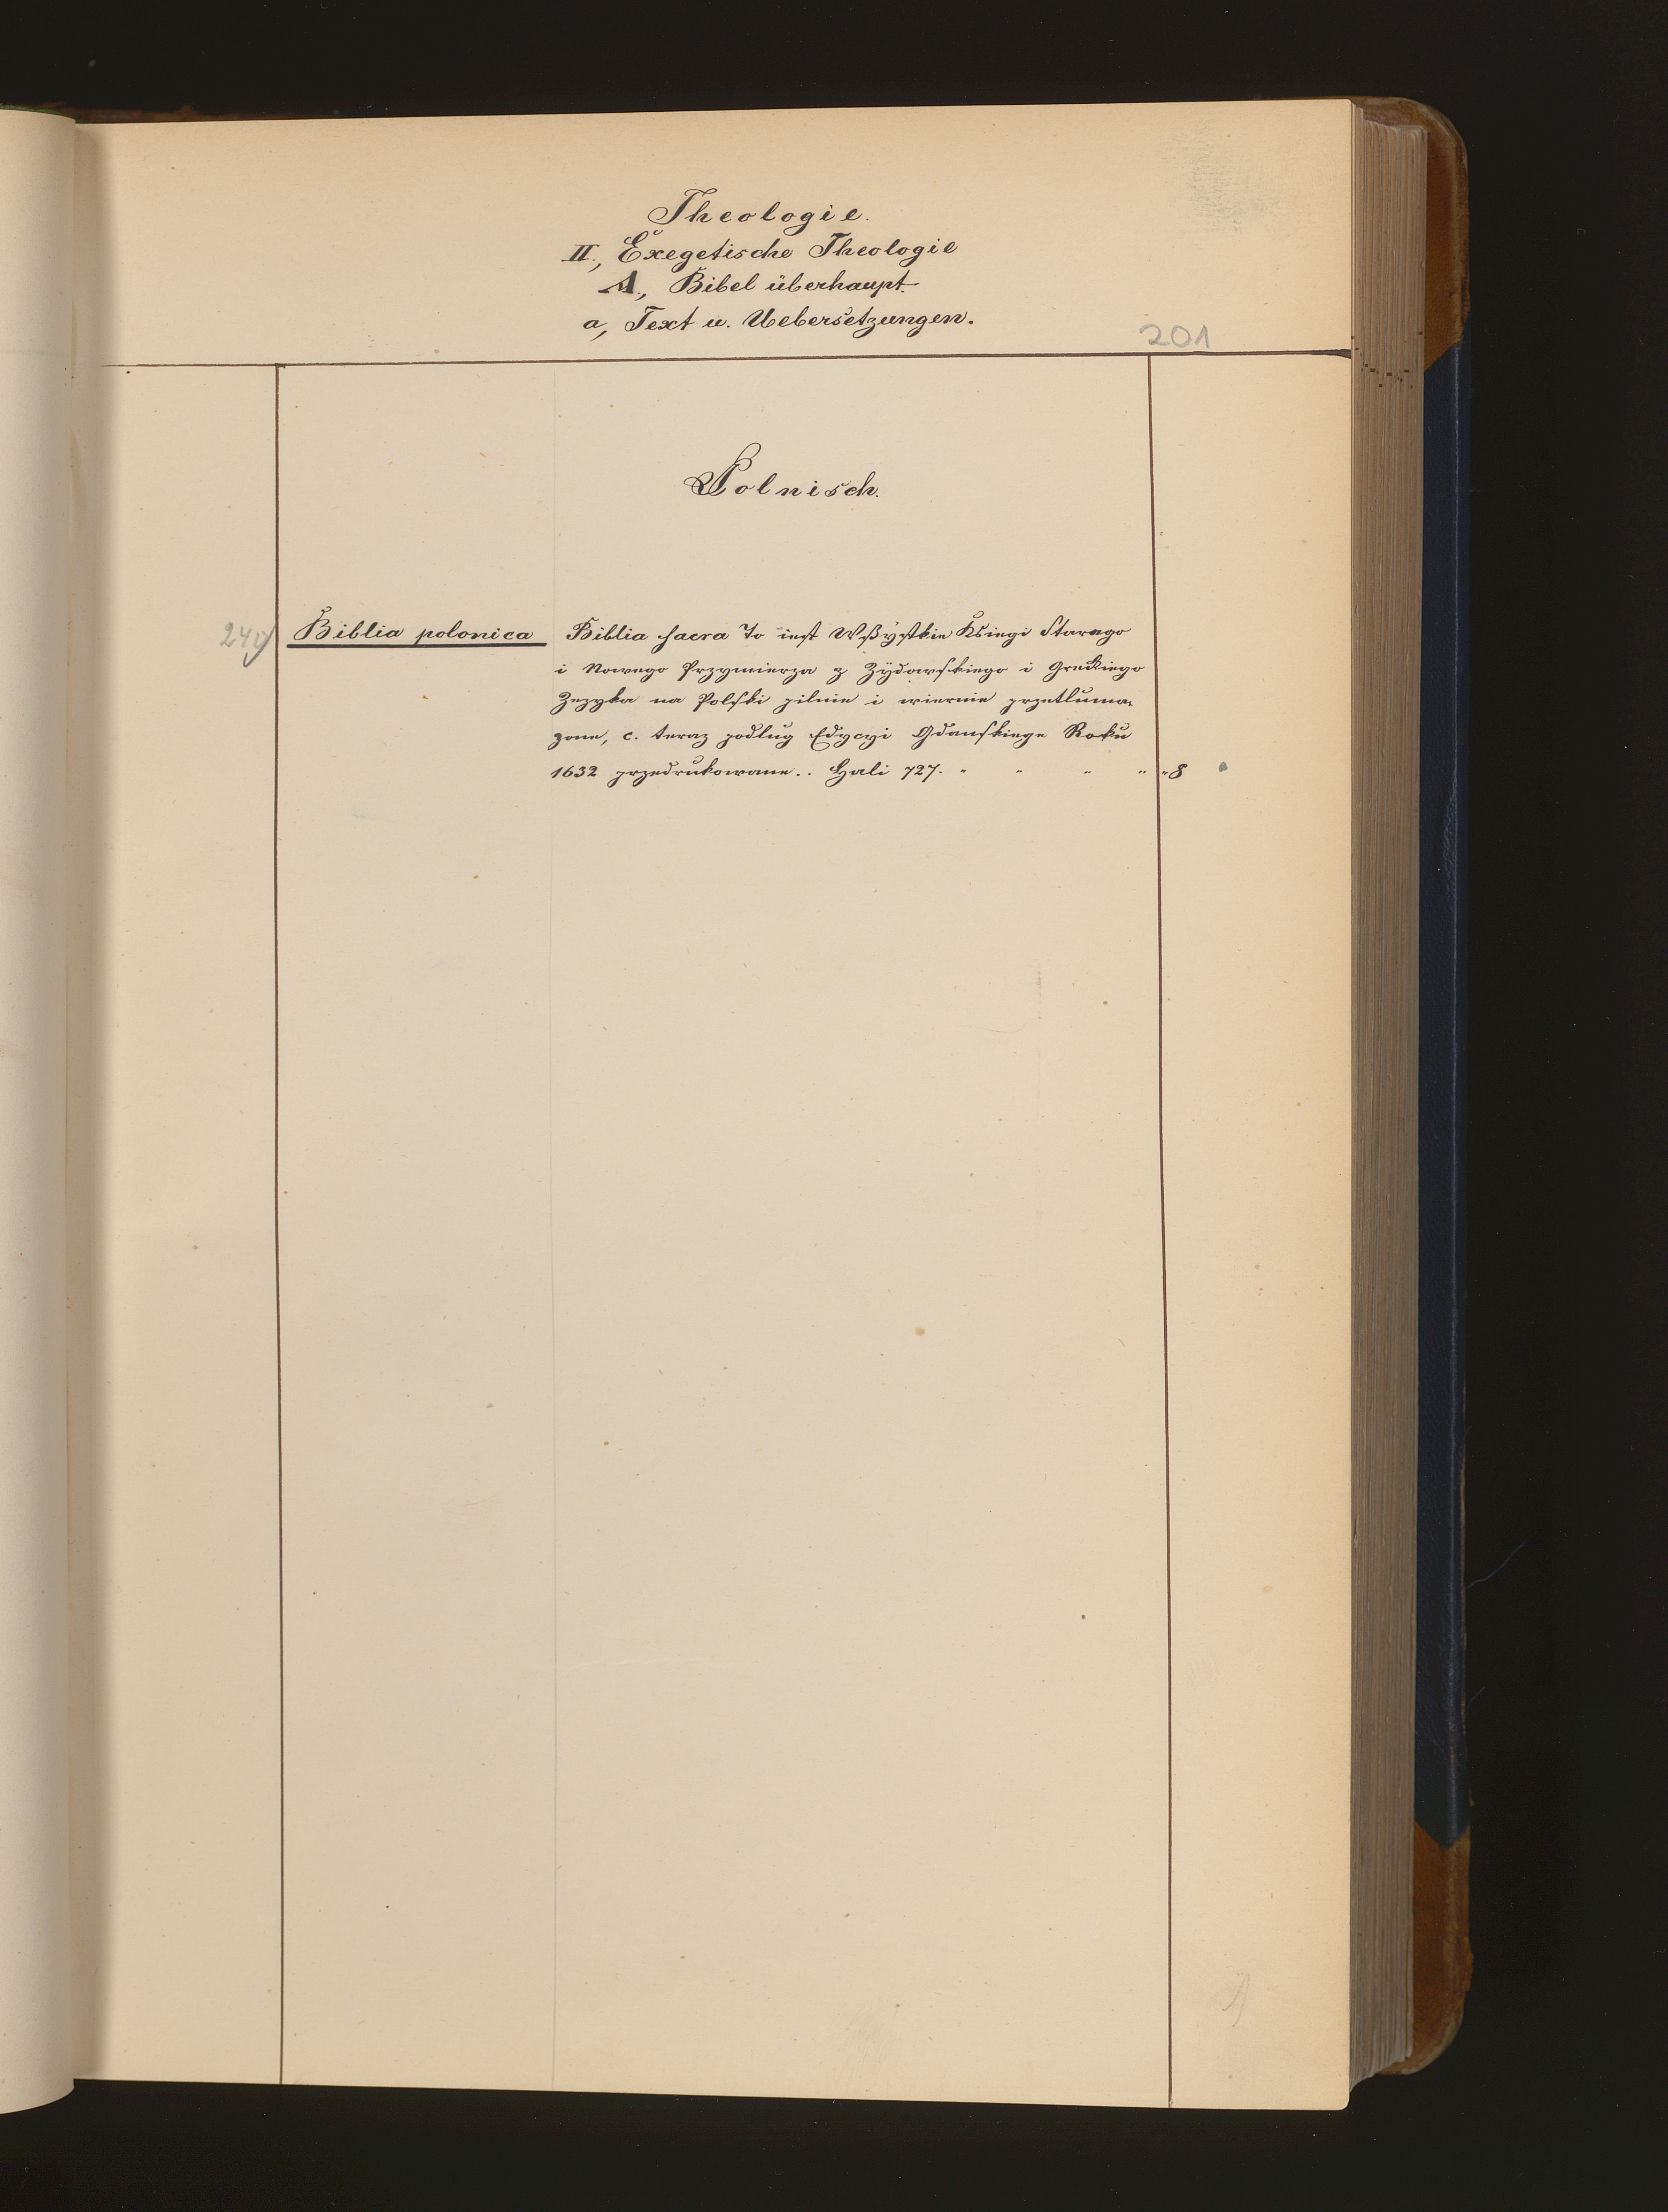 Theologie.
II., Exegetische Theologie
A., Bibel überhaupt.
a, Text u. Uebersetzungen.
201
Polnisch.
Biblia polonica
Biblia sacra To iest Wßystkie Ksiegi Starego
i Nowego Przymierza z Zÿdowskiego i Greckiego
Zezyka na Polski pilnie i wiernie przetluma-
zone, c. teraz podlug Edycyi Gdanskiege Roku
1632 przedrukowane.. Hali 727. " " " " " 8